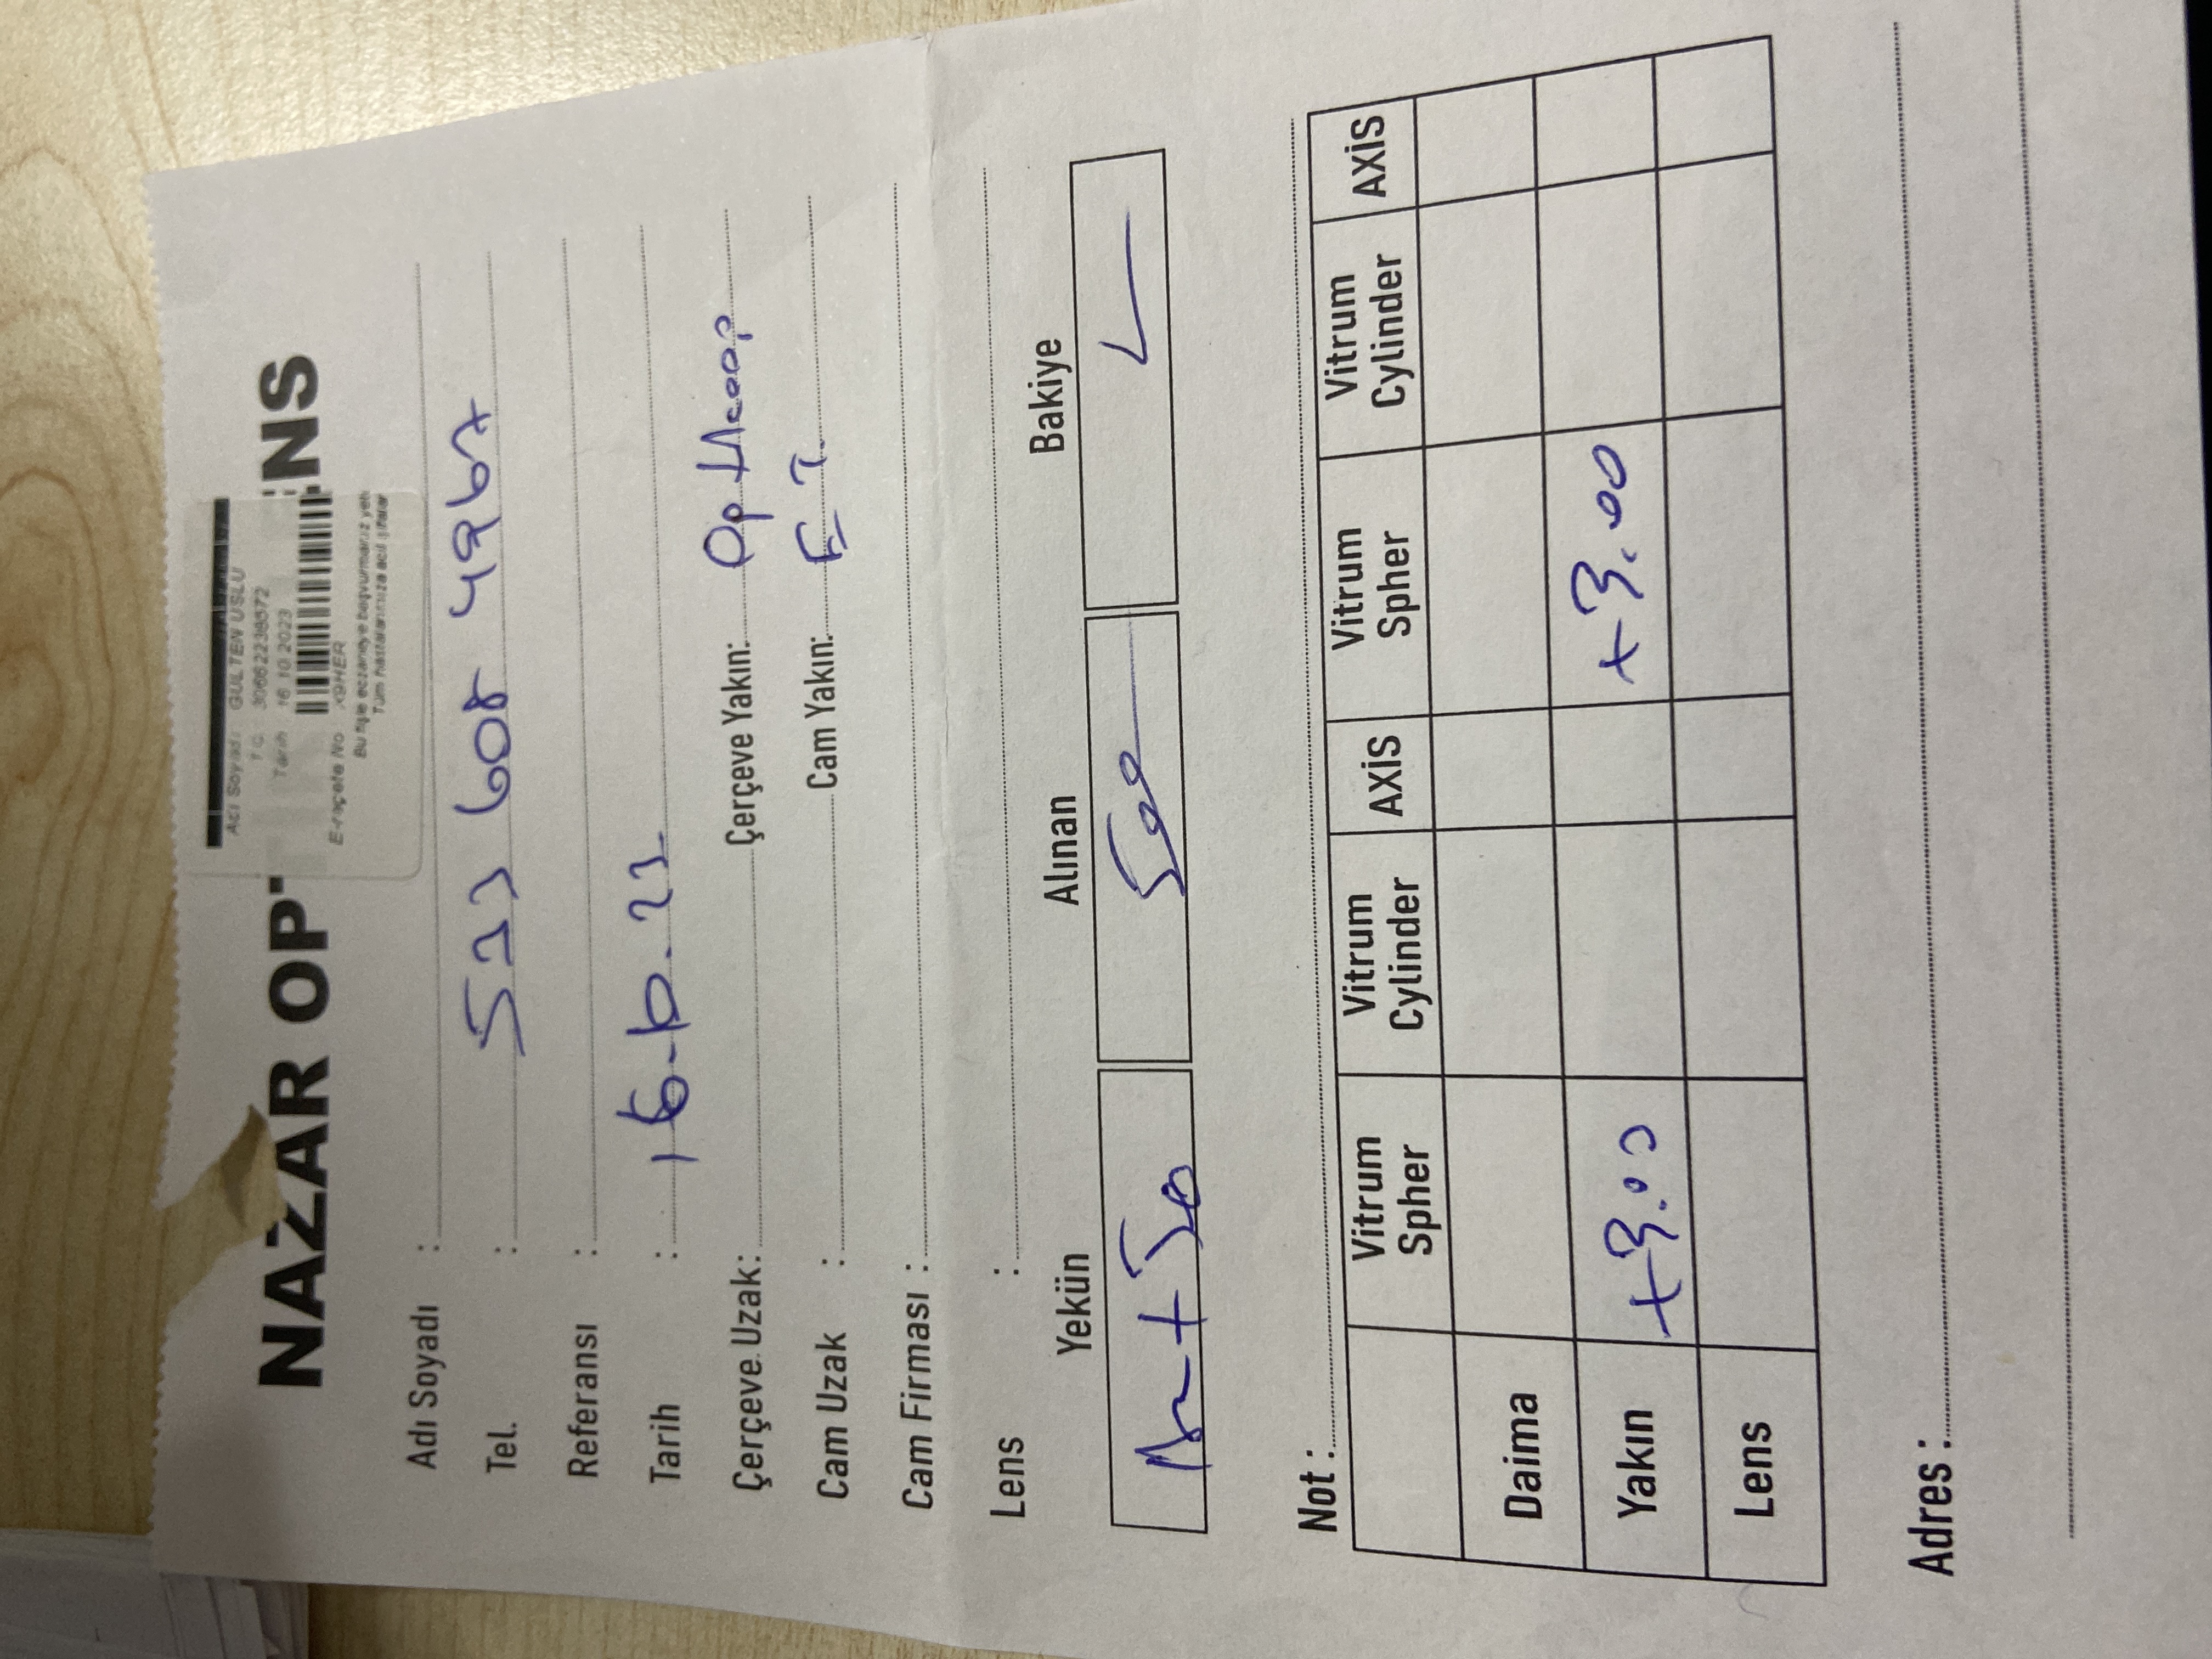 Adı Soyadı: GÜLTEN USLU
T.C. 30662238572
Tarih 16.10.2023
NAZAR OPT ENS
E-reçete No X9HER
Bu fişle eczaneye başvurmanız yeti
Tüm hastalarımıza acil şifalar
Adı Soyadı :
Tel. : 533 608 4967
Referansı :
Tarih : 16.10.23
Çerçeve Uzak: Çerçeve Yakın:
Cam Uzak : Cam Yakın: E T.
Cam Firması :
Lens :
Yekün Alınan Bakiye
+ 50 500
Not :
Vitrum Spher Vitrum Cylinder AXİS Vitrum Spher Vitrum Cylinder AXİS
Daima
Yakın +3.00 +3.00
Lens
Adres :